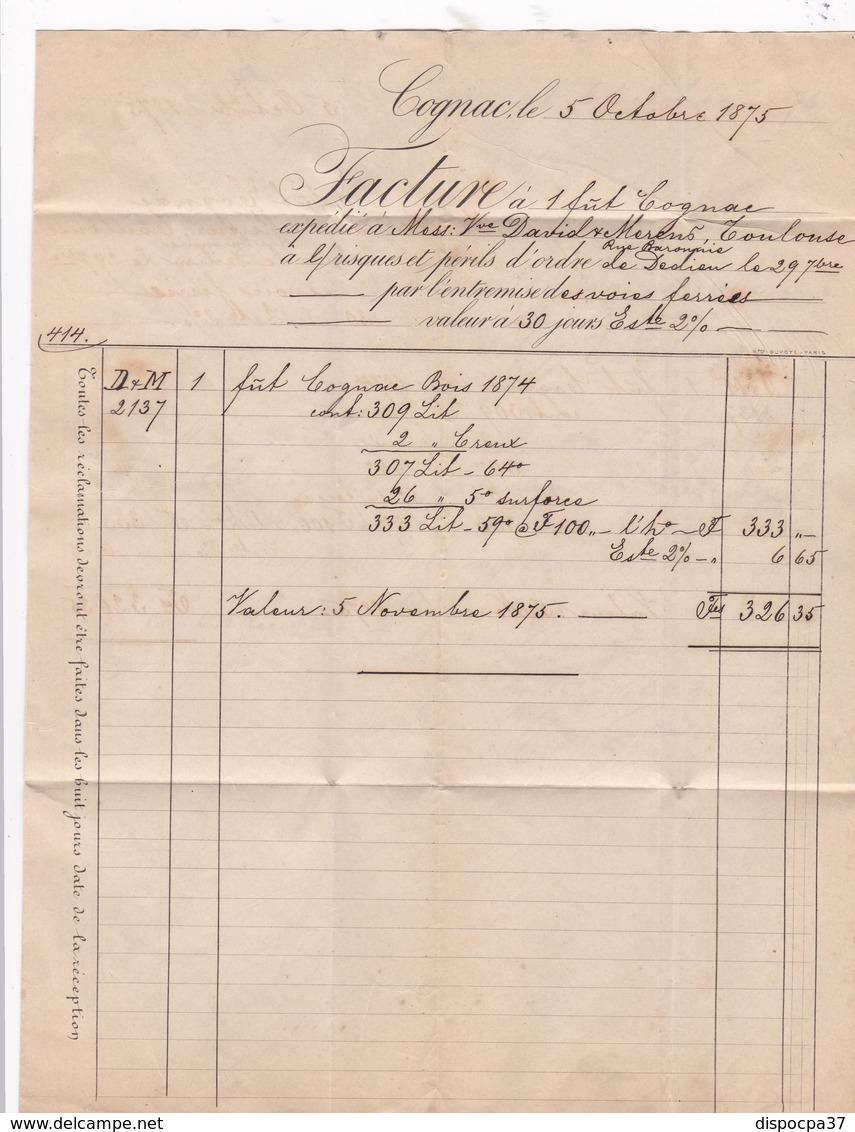 Cognac, le 5 Octobre 1875
Facture à 1 fût Cognac
expédié à Mess: Vve David & Merens, Toulouse
Rue Baronnie
à L/risques et périls d'ordre de Dedieu le 29 7bre
par l'entremise des voies ferrées
valeur à 30 jours Este 2%
414.
D & M 1 fût Cognac Bois 1874
2137 cont: 309 Lit
2 " Creux
307 Lit - 64°
26 " 5° surforce
333 Lit - 59° @ F 100,, - l'ho - F 333 ,,-
Este 2% - " 6 65
Valeur: 5 Novembre 1875. Fcs 326 35
Toutes les réclamations devront être faites dans les huit jours date de la réception
delcampe.net
dispocpa37